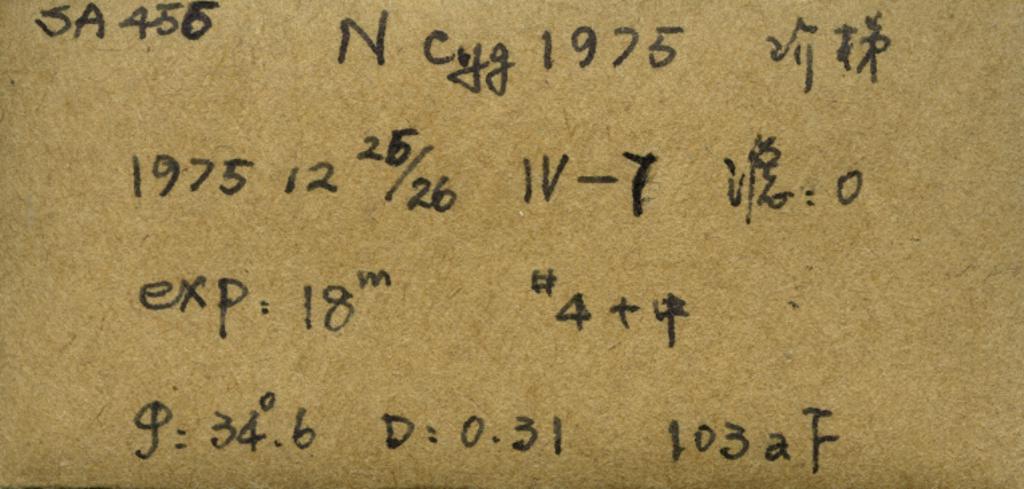 SA 455 N Cyg 1975 阶梯
1975 12 25/26 IV-7 滤:0
exp: 18m #4+中
φ: 34°.6 D: 0.31 103aF